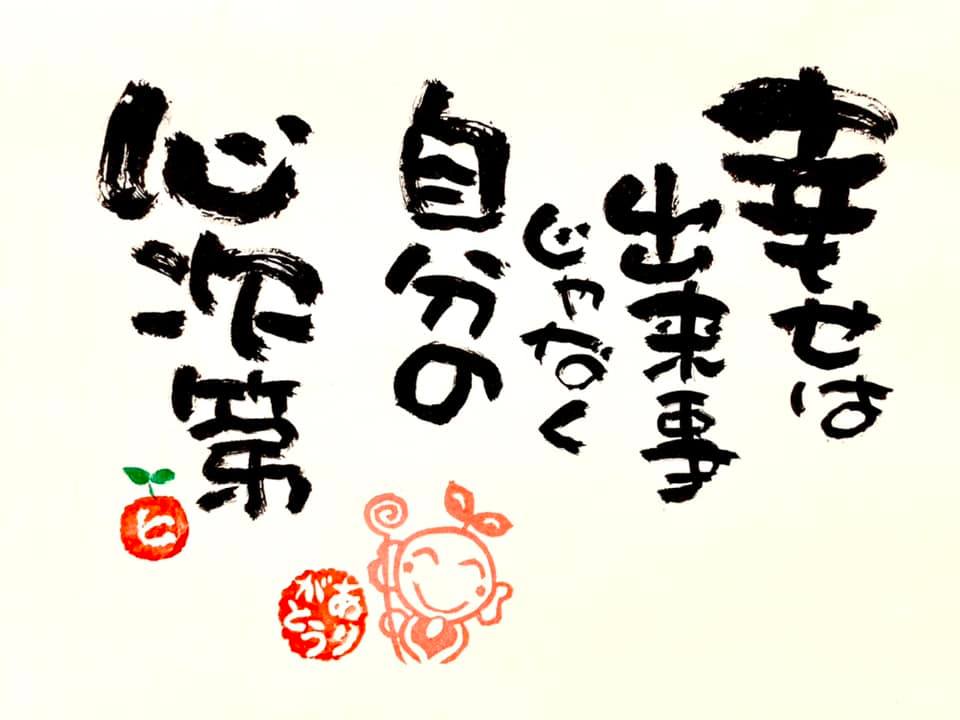 幸せは
出来事
じゃなく
自分の
心次第
ヒ
ありがとう